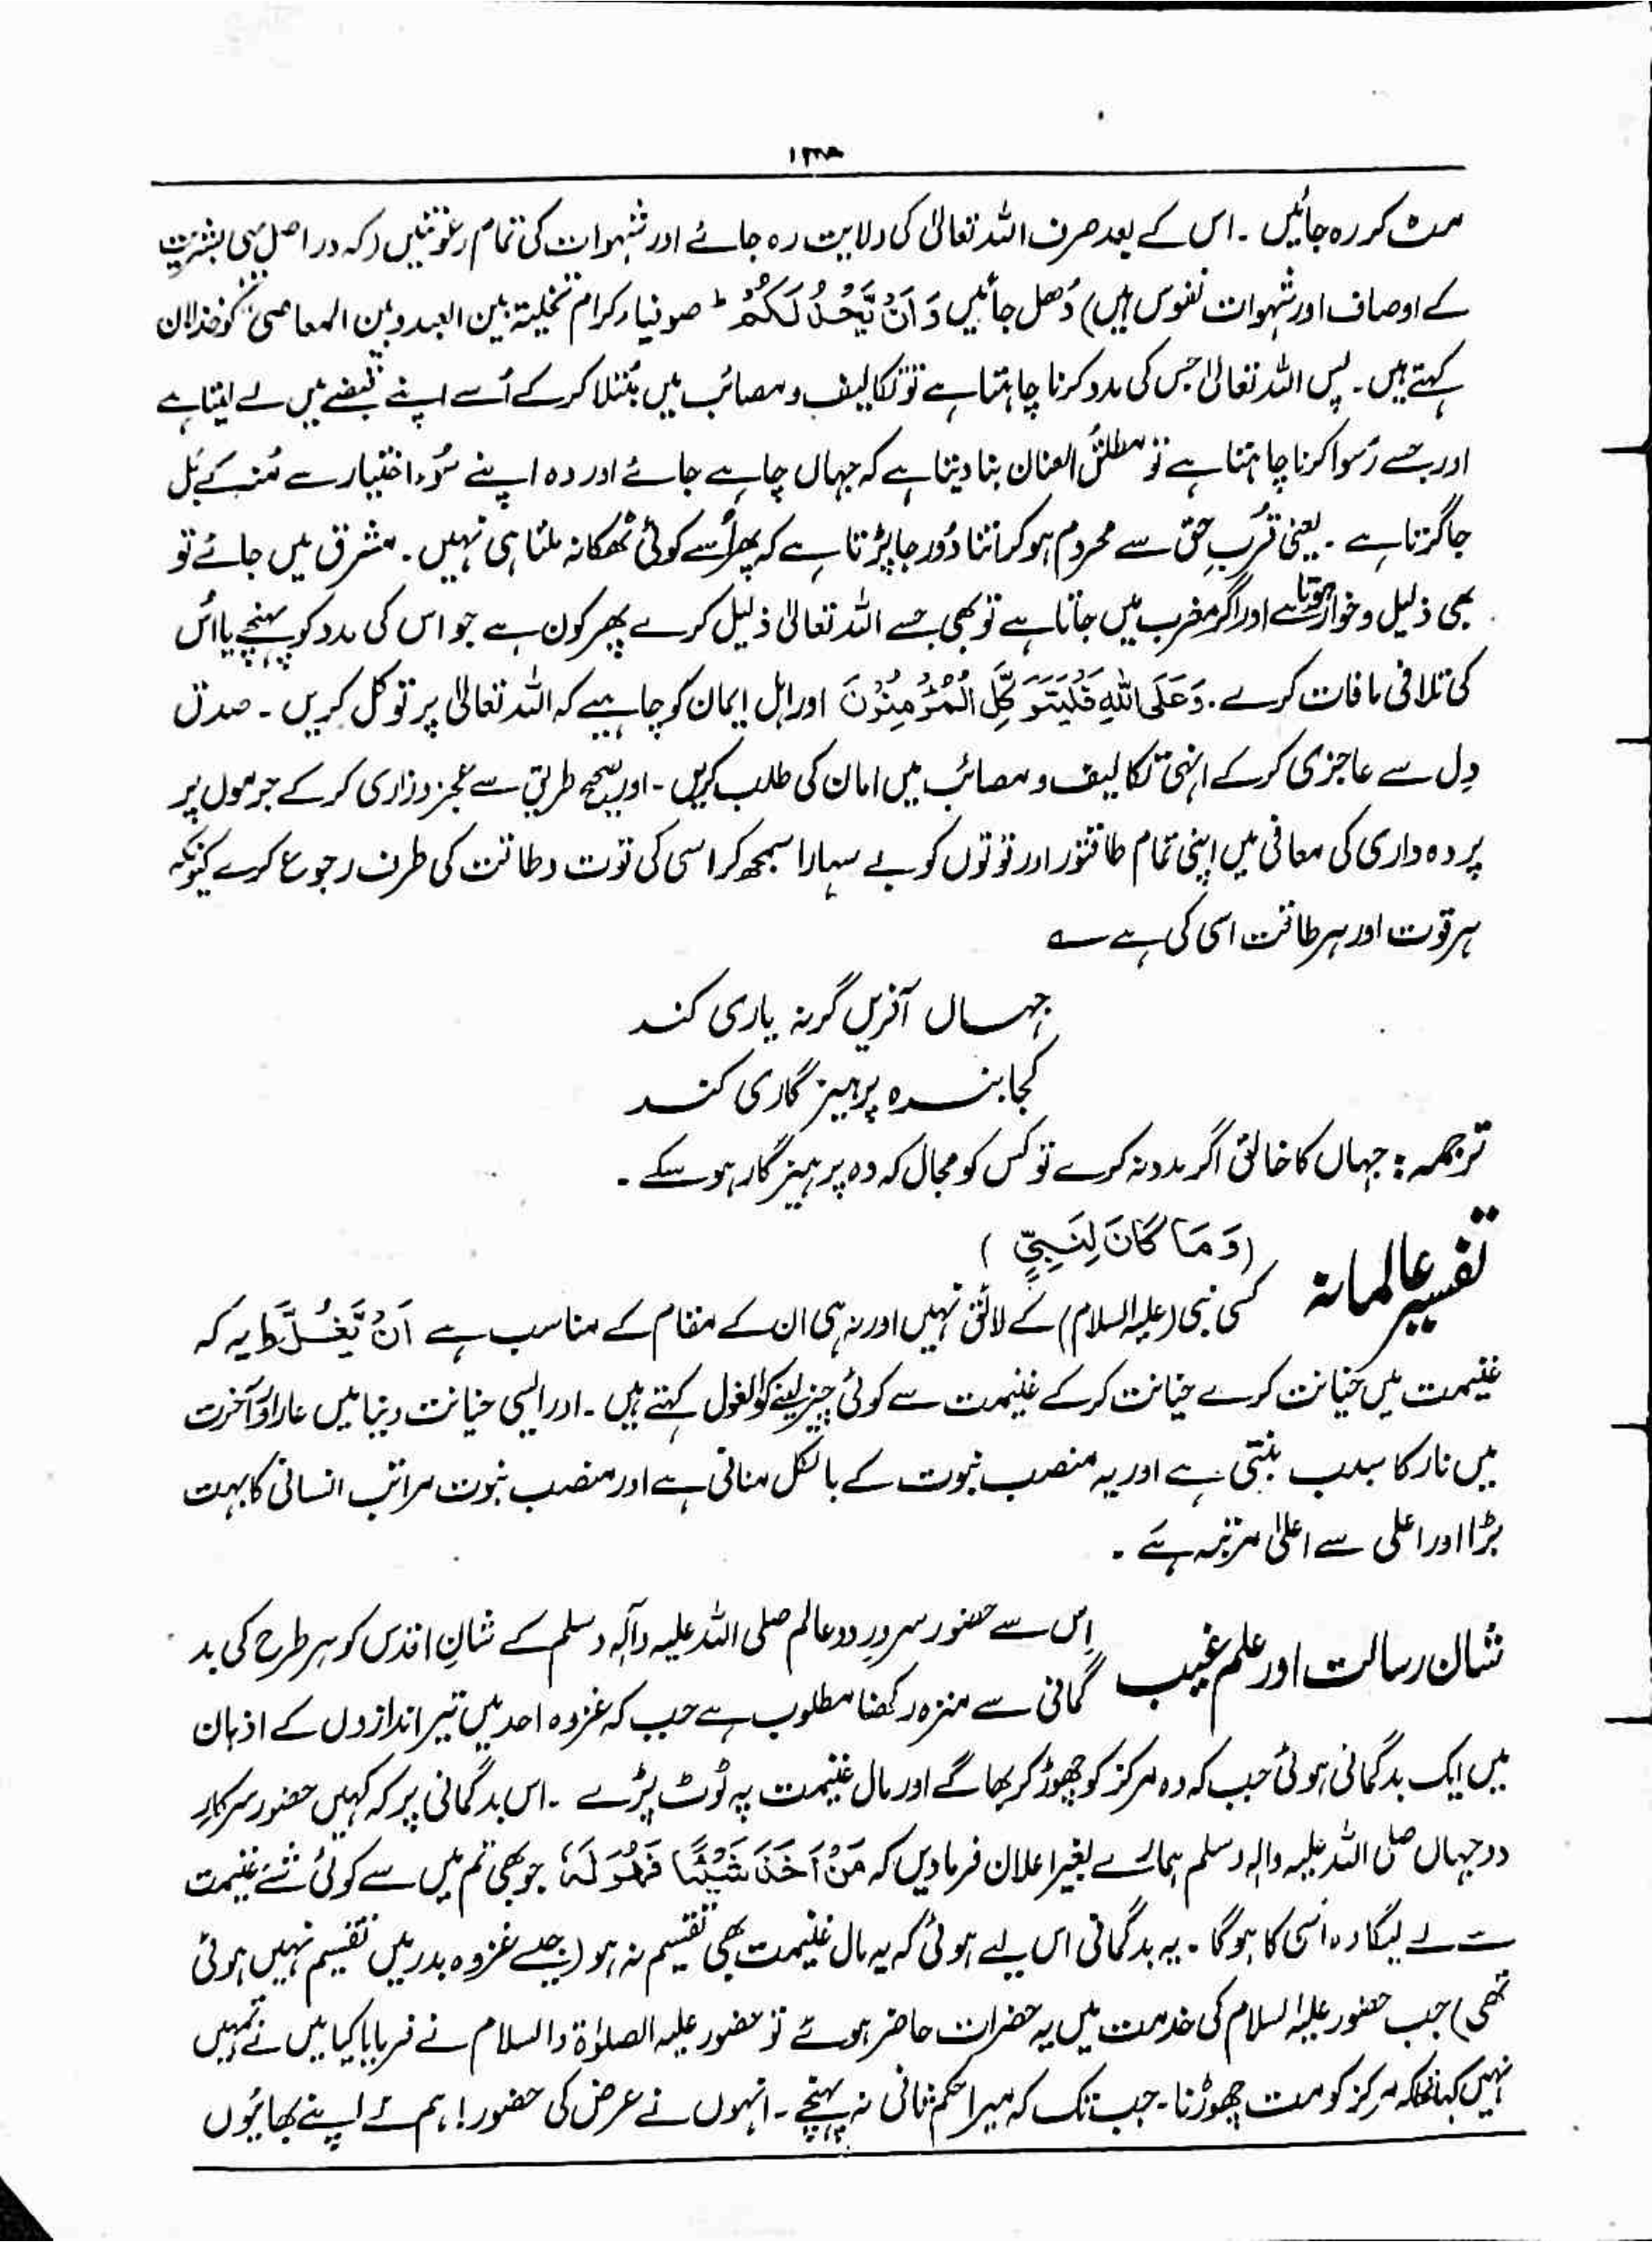 ۱۳۸
مٹ کر رہ جائیں ۔ اس کے بعد صرف اللہ تعالیٰ کی ولایت رہ جائے اور شہوات کی تمام رعونتیں (کہ در اصل یہی بشریت
کے اوصاف اور شہوات نفوس ہیں) دُھل جائیں وَ اَنْ يَّخْذُلْكُمْ ط صوفیاء کرام تخلیۃ بین العبد وبین المعاصی کو خذلان
کہتے ہیں ۔ پس اللہ تعالیٰ جس کی مدد کرنا چاہتا ہے تو تکالیف و مصائب میں مبتلا کر کے اُسے اپنے قبضے میں لے لیتا ہے
اور جسے رُسوا کرنا چاہتا ہے تو مطلق العنان بنا دیتا ہے کہ جہاں چاہے جائے اور وہ اپنے سُوء اختیار سے مُنہ کے بَل
جا گرتا ہے ۔ یعنی قُربِ حق سے محروم ہو کر اتنا دُور جا پڑتا ہے کہ پھر اُسے کوئی ٹھکانہ ملتا ہی نہیں ۔ مشرق میں جائے تو
بھی ذلیل و خوار ہوتا ہے اور اگر مغرب میں جاتا ہے تو بھی جسے اللہ تعالیٰ ذلیل کرے پھر کون ہے جو اس کی مدد کو پہنچے یا اُس
کی تلافی مافات کرے ۔ وَعَلَى اللّٰهِ فَلْيَتَوَكَّلِ الْمُؤْمِنُوْنَ اور اہل ایمان کو چاہیے کہ اللہ تعالیٰ پر توکل کریں ۔ صدق
دِل سے عاجزی کر کے انہی تکالیف و مصائب میں امان کی طلب کریں ۔ اور صحیح طریق سے عجز و زاری کر کے جرموں پر
پردہ داری کی معافی میں اپنی تمام طاقتور اور قوتوں کو بے سہارا سمجھ کر اسی کی قوت و طاقت کی طرف رجوع کرے کیونکہ
ہر قوت اور ہر طاقت اسی کی ہے ؎
جہاں آفریں گر نہ یاری کند
کجا بندہ پرہیز گاری کند
ترجمہ : جہاں کا خالق اگر مدد نہ کرے تو کس کو مجال کہ وہ پرہیز گار ہو سکے ۔
تفسیر عالمانہ (وَ مَا كَانَ لِنَبِيٍّ)
کسی نبی (علیہ السلام) کے لائق نہیں اور نہ ہی ان کے مقام کے مناسب ہے اَنْ يَّغُلَّ ط یہ کہ
غنیمت میں خیانت کرے خیانت کر کے غنیمت سے کوئی چیز لینے کو الغلول کہتے ہیں ۔ اور ایسی خیانت دنیا میں عار اور آخرت
میں نار کا سبب بنتی ہے اور یہ منصب نبوت کے بالکل منافی ہے اور منصب نبوت مراتب انسانی کا بہت
بڑا اور اعلی سے اعلیٰ مرتبہ ہے ۔
شان رسالت اور علم غیب اِس سے حضور سرورِ دو عالم صلی اللہ علیہ وآلہ وسلم کے شانِ اقدس کو ہر طرح کی بد
گمانی سے منزہ رکھنا مطلوب ہے جب کہ غزوہ احد میں تیر اندازوں کے اذہان
میں ایک بدگمانی ہوئی جب کہ وہ مرکز کو چھوڑ کر بھاگے اور مال غنیمت پہ ٹوٹ پڑے ۔ اس بدگمانی پر کہ کہیں حضور سرکارِ
دوجہاں صلی اللہ علیہ والہ وسلم ہمارے بغیر اعلان فرما دیں کہ مَنْ اَخَذَ شَيْئًا فَهُوَ لَهٗ جو بھی تم میں سے کوئی شئے غنیمت
سے لے لیگا وہ اُسی کا ہوگا ۔ یہ بدگمانی اس لیے ہوئی کہ یہ مال غنیمت بھی تقسیم نہ ہو (جیسے غزوہ بدر میں تقسیم نہیں ہوئی
تھی) جب حضور علیہ السلام کی خدمت میں یہ حضرات حاضر ہوئے تو حضور علیہ الصلوٰۃ والسلام نے فرمایا کیا میں نے تمہیں
نہیں کہا تھا کہ مرکز کو مت چھوڑنا ۔ جب تک کہ میرا حکم ثانی نہ پہنچے ۔ انہوں نے عرض کی حضور ! ہم نے اپنے بھائیوں